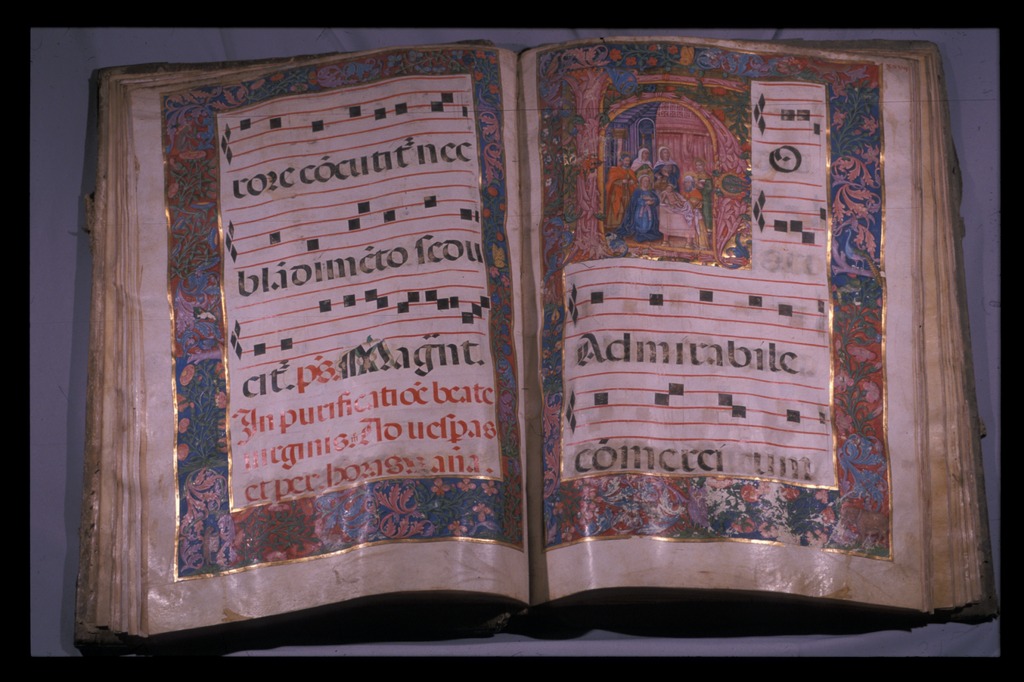 rore cōcutit nec
bládimēto sedu
cit. ps. Magnt.
In purificatiōe beate
virginis. Ad uesꝑas
et per horas. añā.
O
Admirabile
cōmerci um